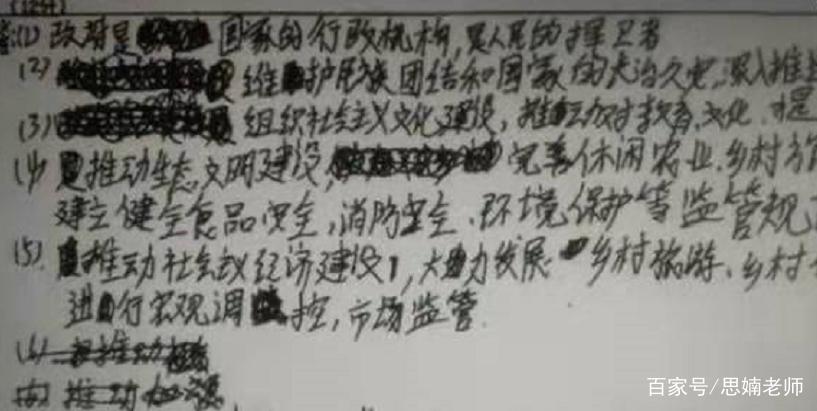 (12分)
(1) 政府是国家的行政机构,是人民的捍卫者
(2) 维护民族团结和国家的长治久安,深入推
(3) 组织社会主义文化建设,推动对教育、文化、
(4) 推动生态文明建设,完善休闲农业、乡村旅
建立健全食品安全,消防安全、环境保护等监管规
(5) 推动社会主义经济建设,大力发展乡村旅游、乡村
进行宏观调控,市场监管
(6) 推动
推动
百家号/思婻老师